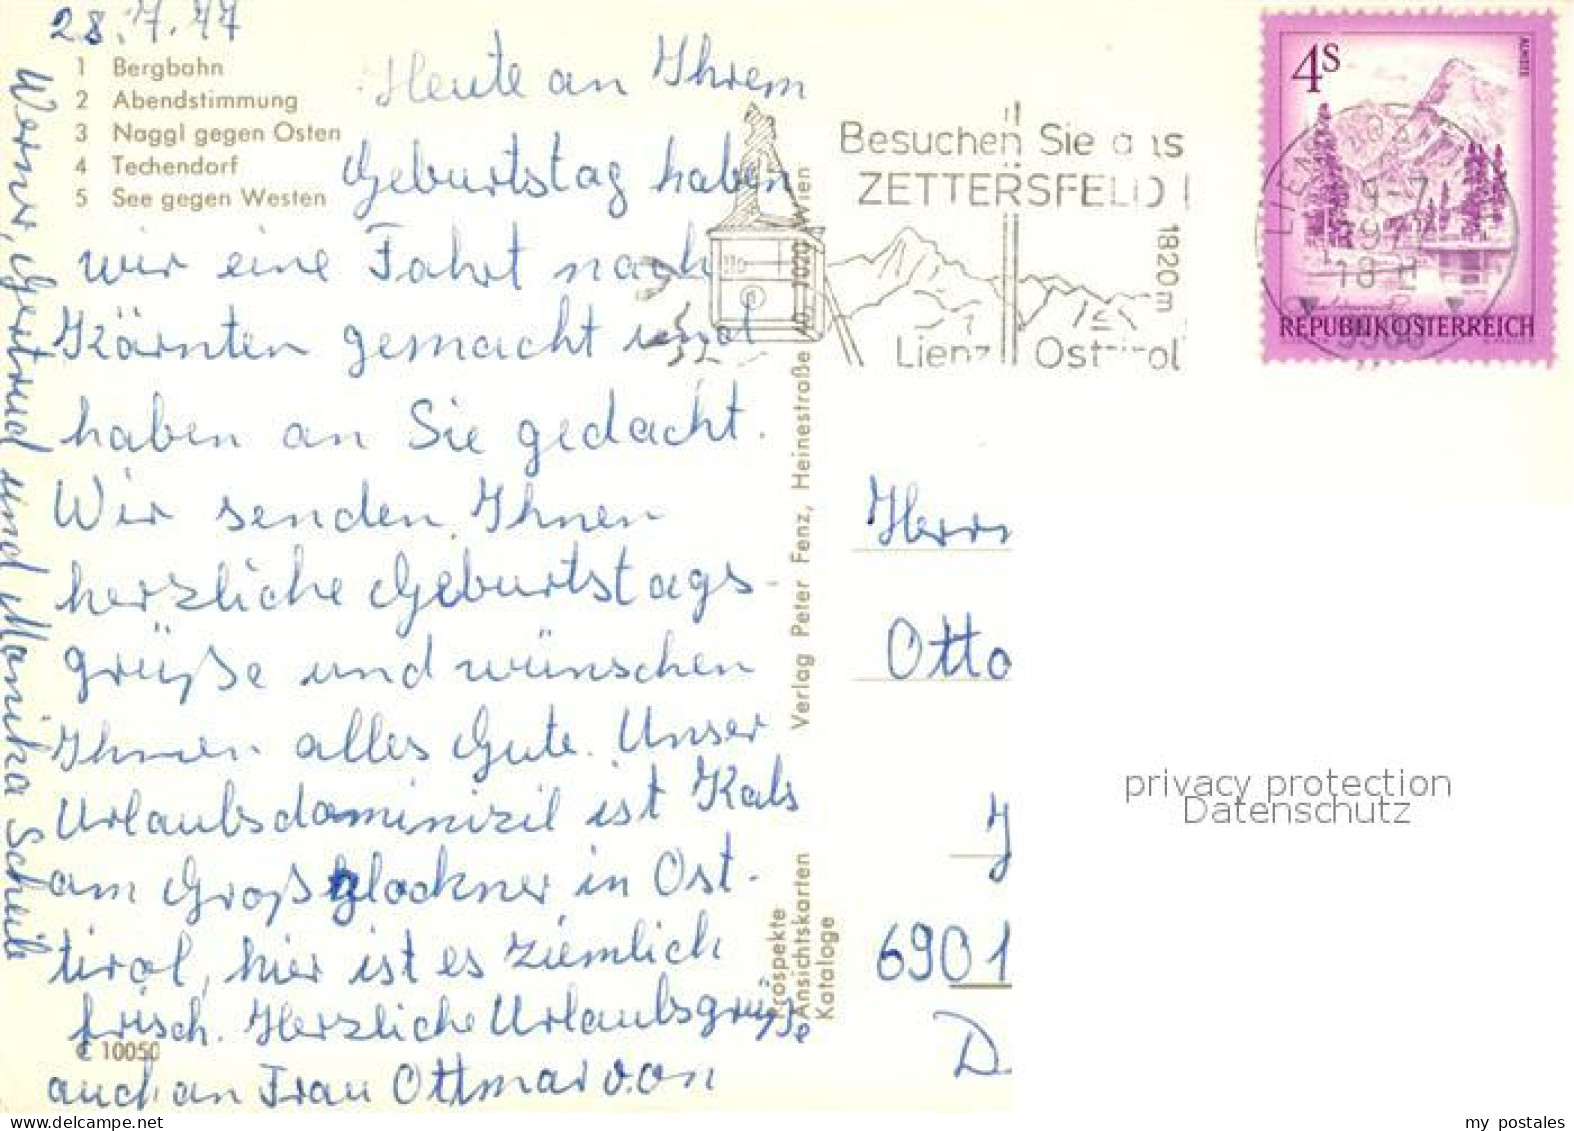 28.7.77
1 Bergbahn
2 Abendstimmung
3 Naggl gegen Osten
4 Techendorf
5 See gegen Westen
Heute an Ihrem
Geburtstag haben
wir eine Fahrt nach
Kärnten gemacht und
haben an Sie gedacht.
Wir senden Ihnen
herzliche Geburtstags-
grüße und wünschen
Ihnen alles Gute. Unser
Urlaubsdominizil ist Kals
am Großglockner in Ost-
tirol, hier ist es ziemlich
frisch. Herzliche Urlaubsgrüße
auch an Frau Ottmar von
Werner, Gertrud und Monika Scheib
C 10050
Verlag Peter Fenz, Heinestraße 40, 1020 Wien
Prospekte
Ansichtskarten
Kataloge
Besuchen Sie das
ZETTERSFELD!
1820m
Lienz Osttirol
4S
ALMSEE
REPUBLIK ÖSTERREICH
LIENZ
9-7
1977
18 H
9900
Herrn
Otto
6901
D.
privacy protection
Datenschutz
delcampe.net
my_postales